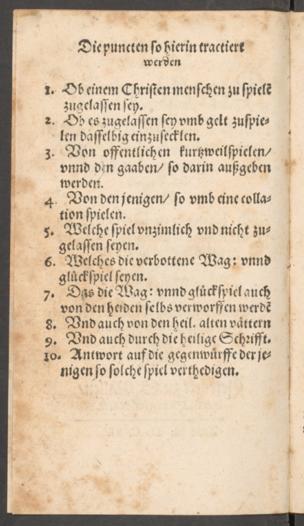 Die puncten so hierin tractiert
werden
1. Ob einem Christen menschen zu spielē
zugelassen sey.
2. Ob es zugelassen sey vmb gelt zuspie-
len dasselbig einzusecklen.
3. Von offentlichen kurtzweilspielen/
vnnd den gaaben/ so darin außgeben
werden.
4. Von den jenigen/ so vmb eine colla-
tion spielen.
5. Welche spiel vnzimlich vnd nicht zu-
gelassen seyen.
6. Welches die verbottene Wag: vnnd
glückspiel seyen.
7. Das die Wag: vnnd glückspiel auch
von den heiden selbs verworffen werdē
8. Vnd auch von den heil. alten vättern
9. Vnd auch durch die heilige Schrifft.
10. Antwort auf die gegenwürffe der je-
nigen so solche spiel verthedigen.